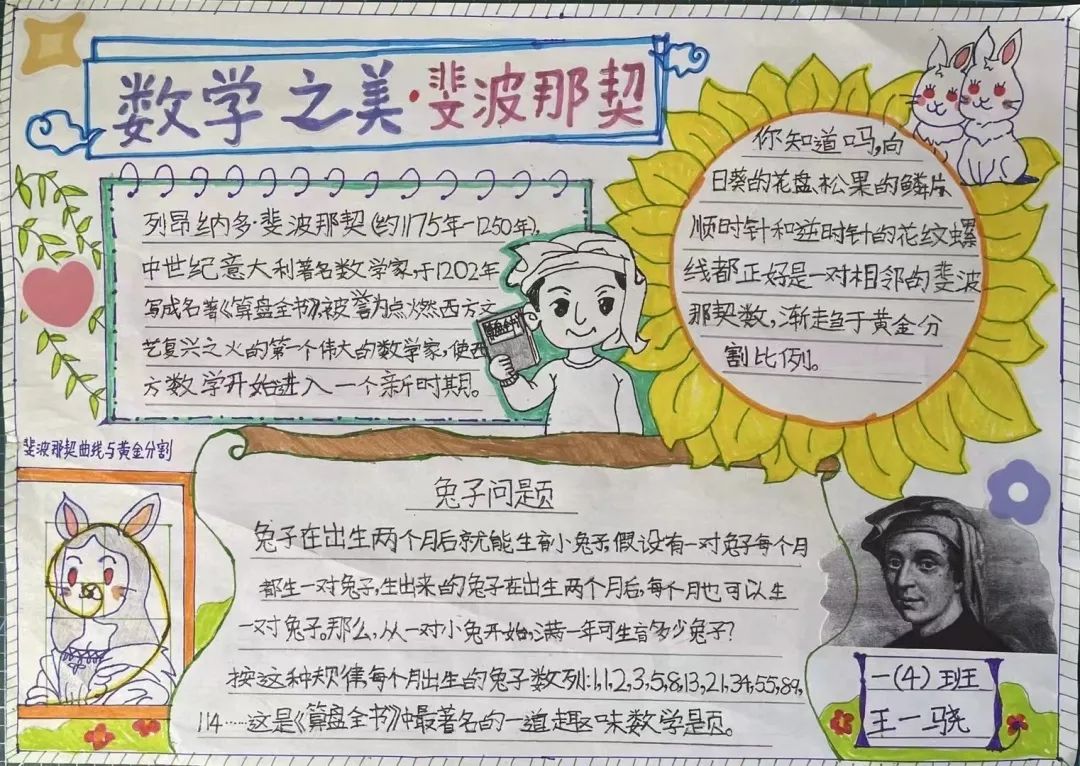 数学之美·斐波那契
列昂纳多·斐波那契(约1175年-1250年),
中世纪意大利著名数学家,于1202年
写成名著《算盘全书》,被誉为点燃西方文
艺复兴之火的第一个伟大的数学家,使西
方数学开始进入一个新时期。
算盘全书
你知道吗,向
日葵的花盘、松果的鳞片、
顺时针和逆时针的花纹螺
线都正好是一对相邻的斐波
那契数,渐趋于黄金分
割比例。
斐波那契曲线与黄金分割
兔子问题
兔子在出生两个月后就能生育小兔子,假设有一对兔子每个月
都生一对兔子,生出来的兔子在出生两个月后,每个月也可以生
一对兔子。那么,从一对小兔开始,满一年可生育多少兔子?
按这种规律,每个月出生的兔子数列:1,1,2,3,5,8,13,21,34,55,89,
114……这是《算盘全书》中最著名的一道趣味数学题。
一(4)班
王一骁